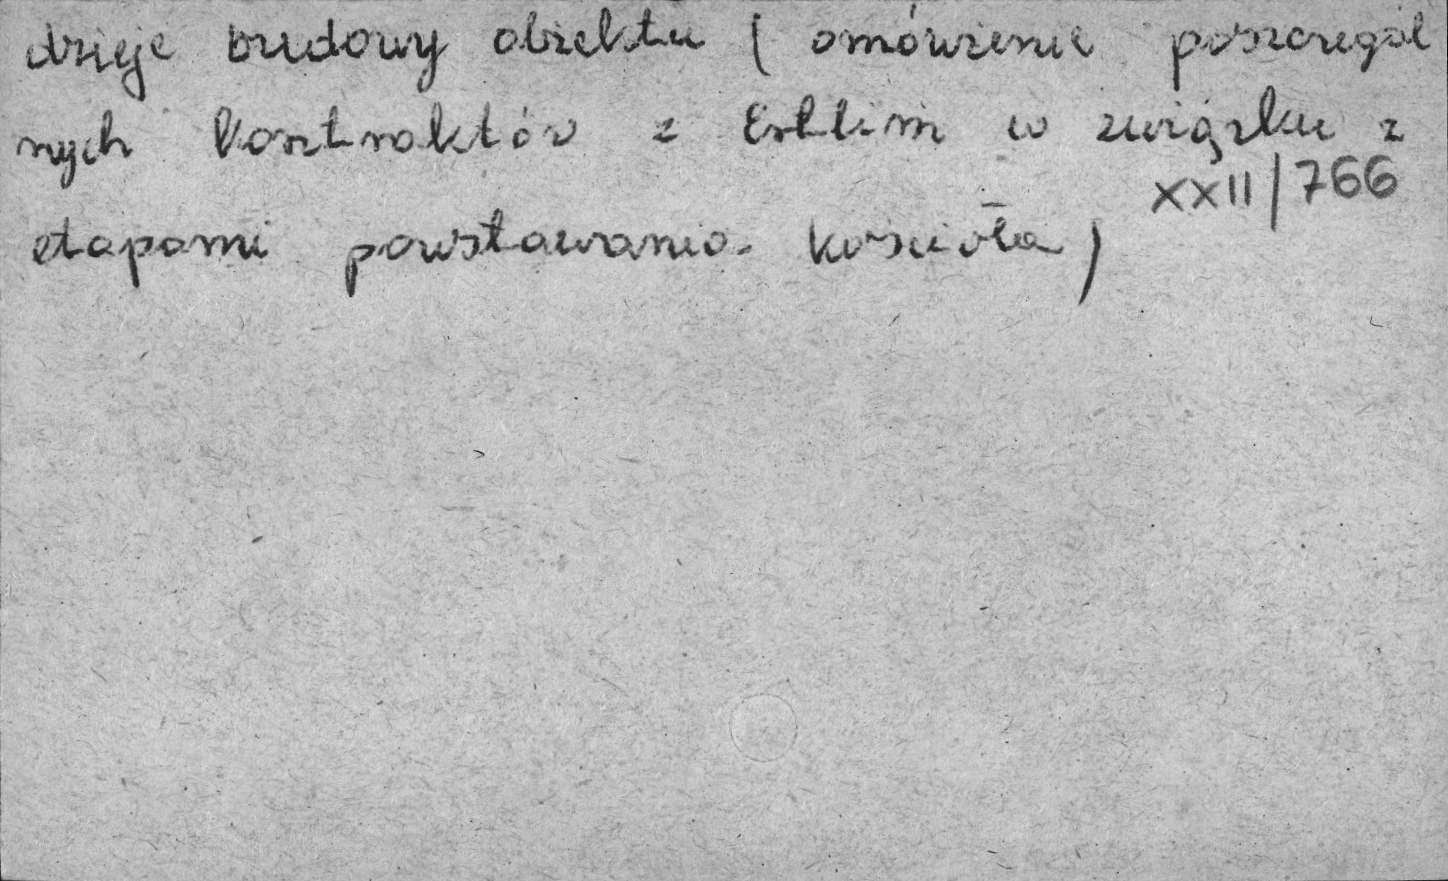 dzieje budowy obiektu ( omówienie poszczegól
nych kontraktów z w związku z
XXII/766
etapami powstawania kościoła )